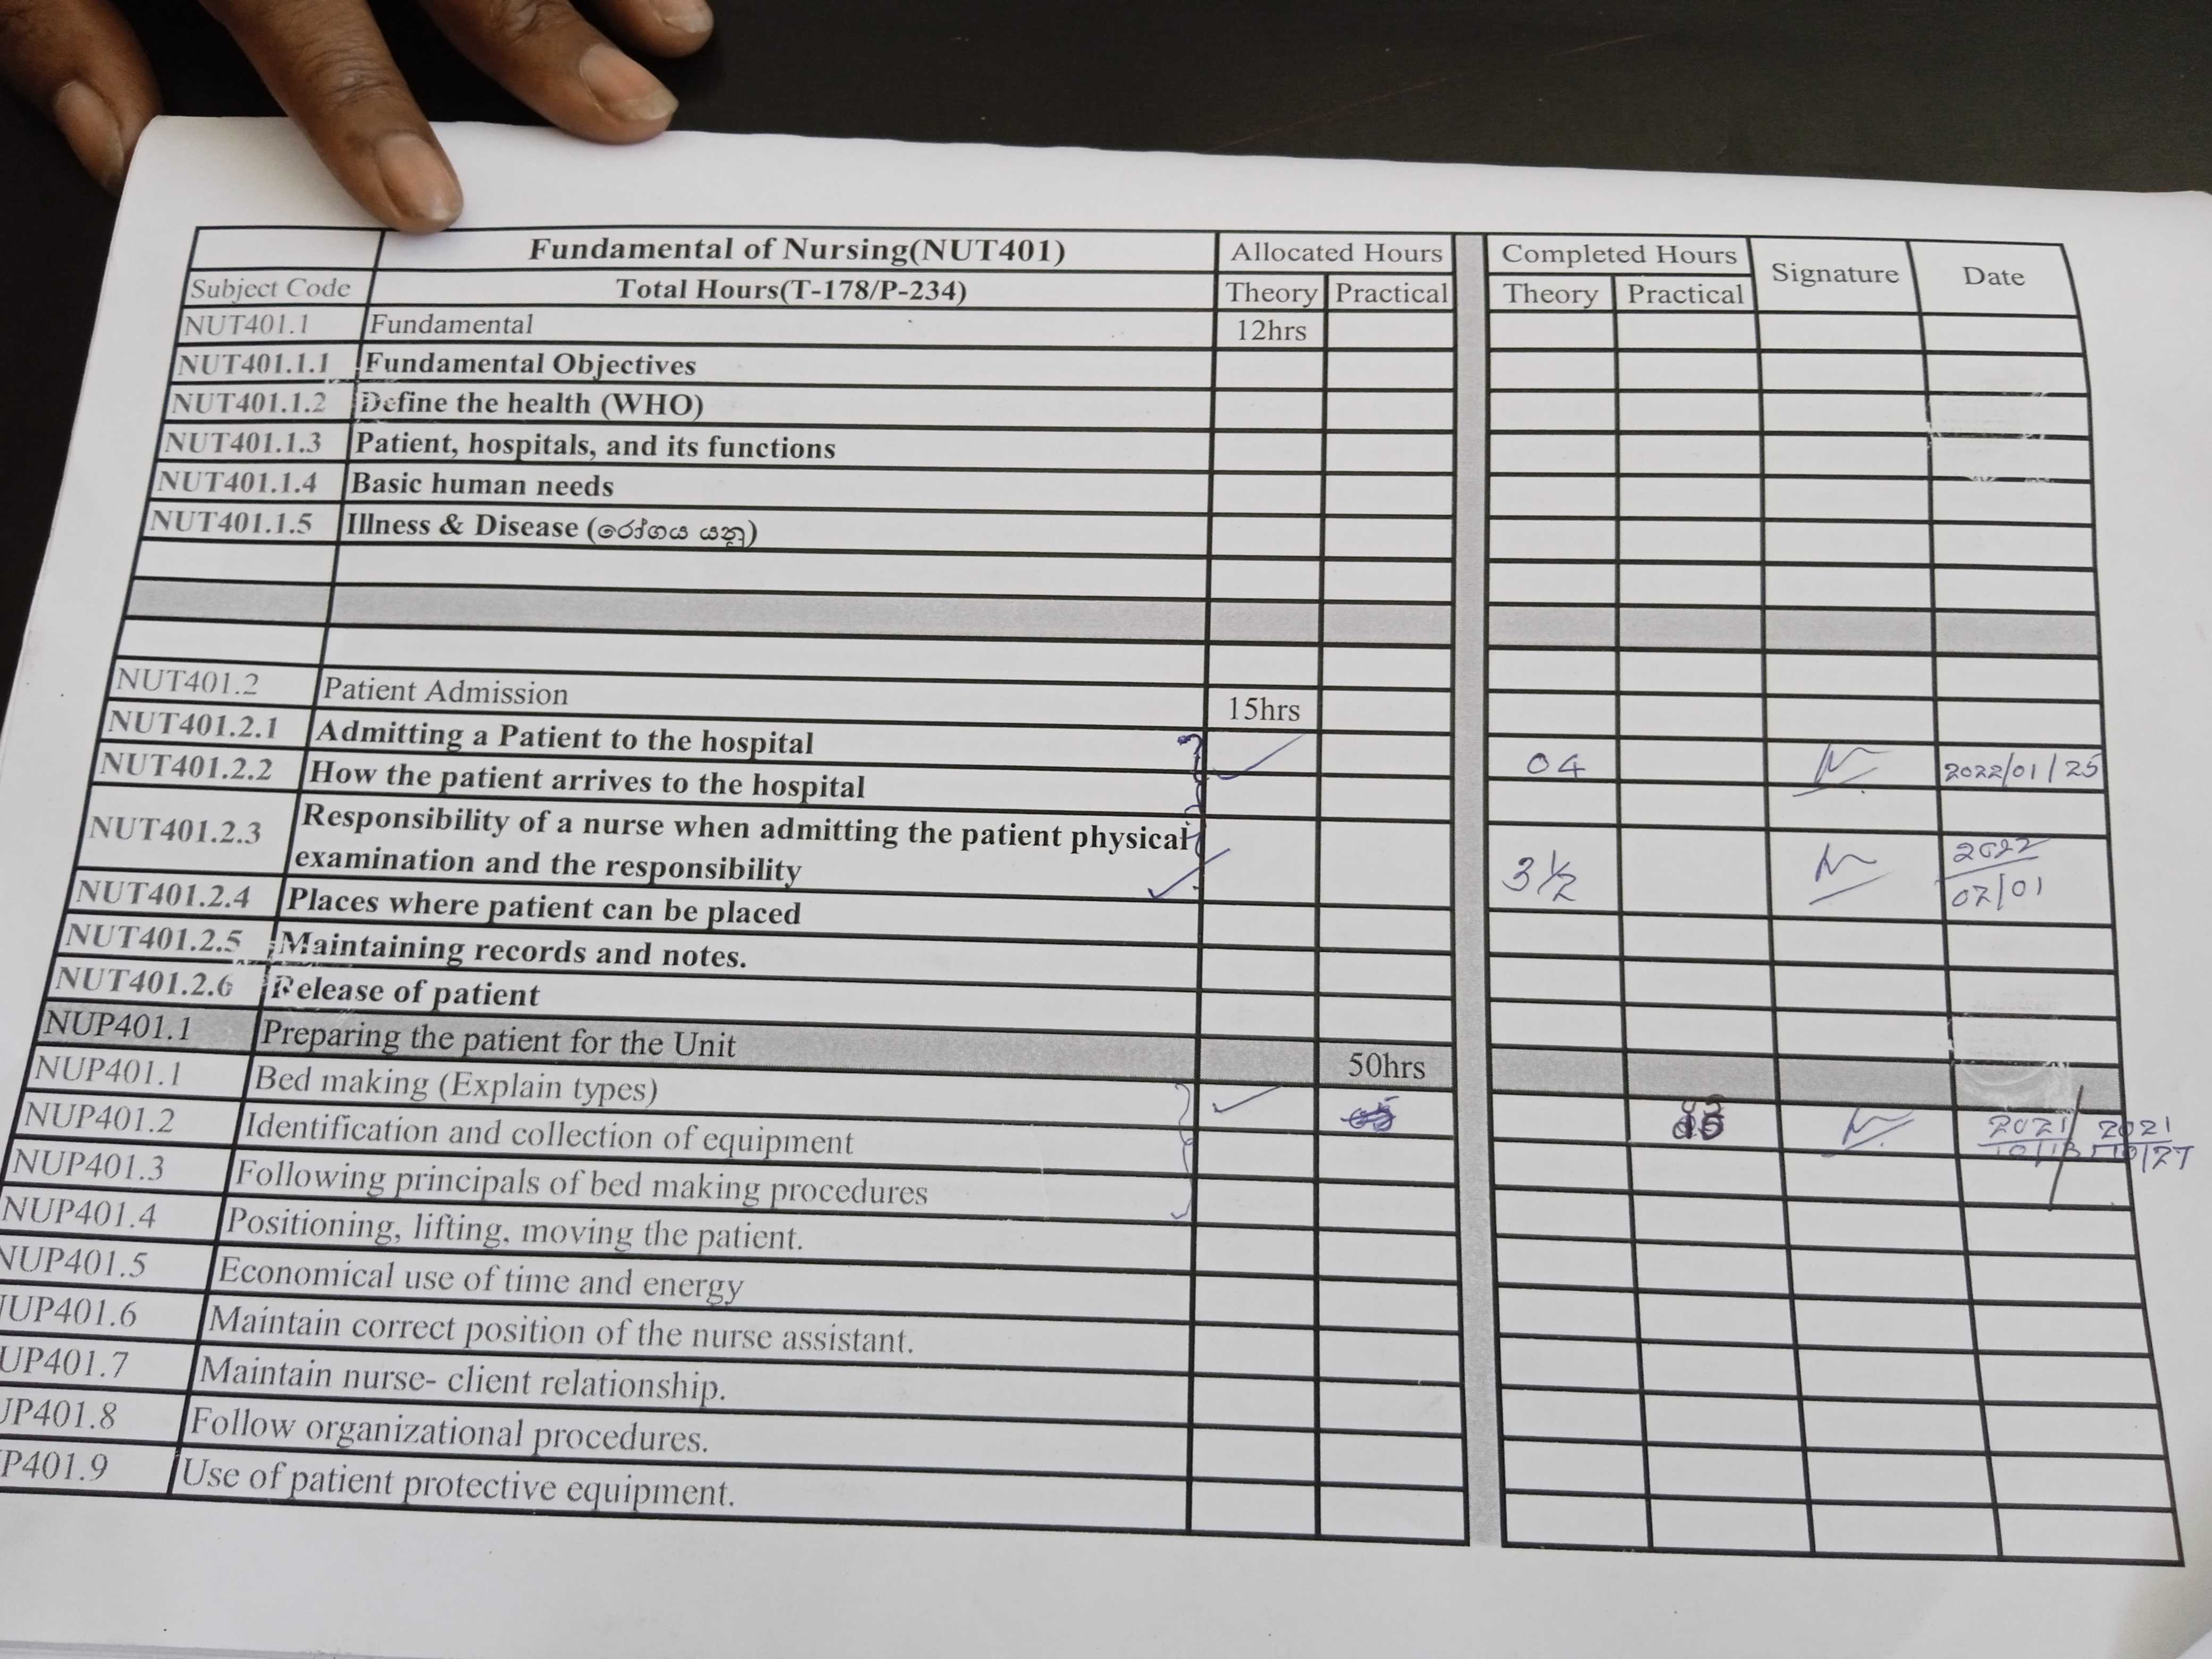 Fundamental of Nursing(NUT401) Allocated Hours Completed Hours Signature Date
Subject Code Total Hours(T-178/P-234) Theory Practical Theory Practical
NUT401.1 Fundamental 12hrs
NUT401.1.1 Fundamental Objectives
NUT401.1.2 Define the health (WHO)
NUT401.1.3 Patient, hospitals, and its functions
NUT401.1.4 Basic human needs
NUT401.1.5 Illness & Disease (රෝගය යනු)
NUT401.2 Patient Admission 15hrs
NUT401.2.1 Admitting a Patient to the hospital
NUT401.2.2 How the patient arrives to the hospital 04 2022/01/25
NUT401.2.3 Responsibility of a nurse when admitting the patient physical
examination and the responsibility 3 ½ 2022
02/01
NUT401.2.4 Places where patient can be placed
NUT401.2.5 Maintaining records and notes.
NUT401.2.6 Release of patient
NUP401.1 Preparing the patient for the Unit 50hrs
NUP401.1 Bed making (Explain types)
NUP401.2 Identification and collection of equipment 2021 2021
10/27
NUP401.3 Following principals of bed making procedures
NUP401.4 Positioning, lifting, moving the patient.
NUP401.5 Economical use of time and energy
UP401.6 Maintain correct position of the nurse assistant.
UP401.7 Maintain nurse- client relationship.
UP401.8 Follow organizational procedures.
P401.9 Use of patient protective equipment.